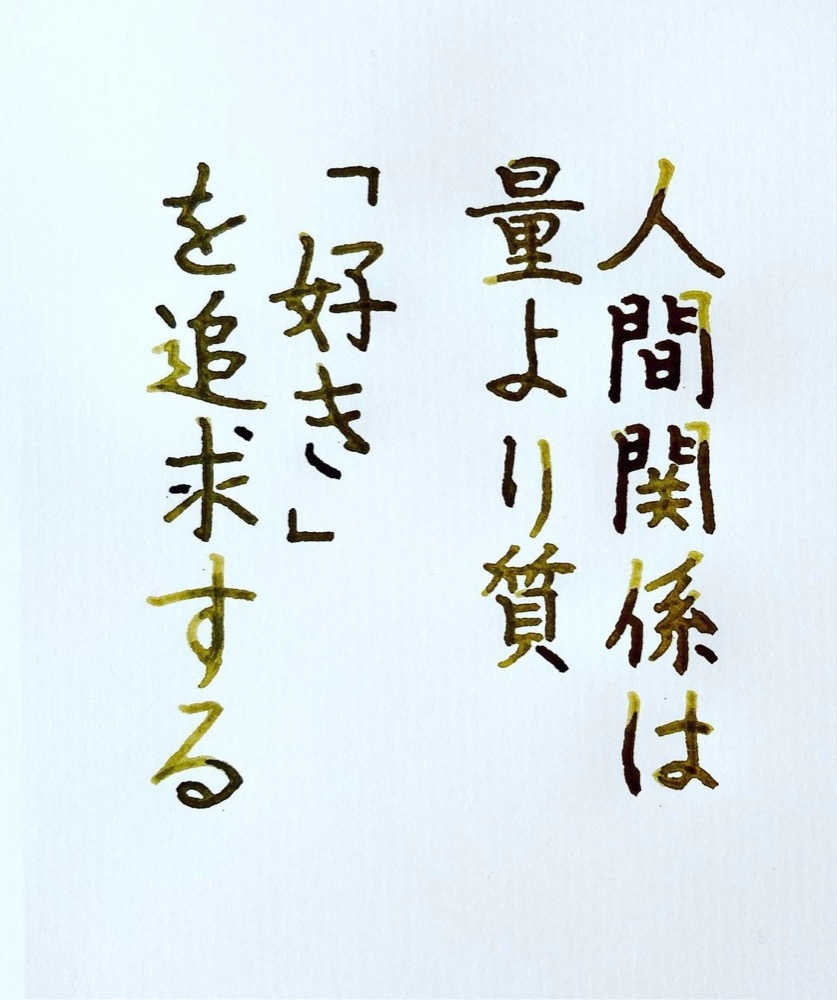 人間関係は
量より質
「好き」
を追求する